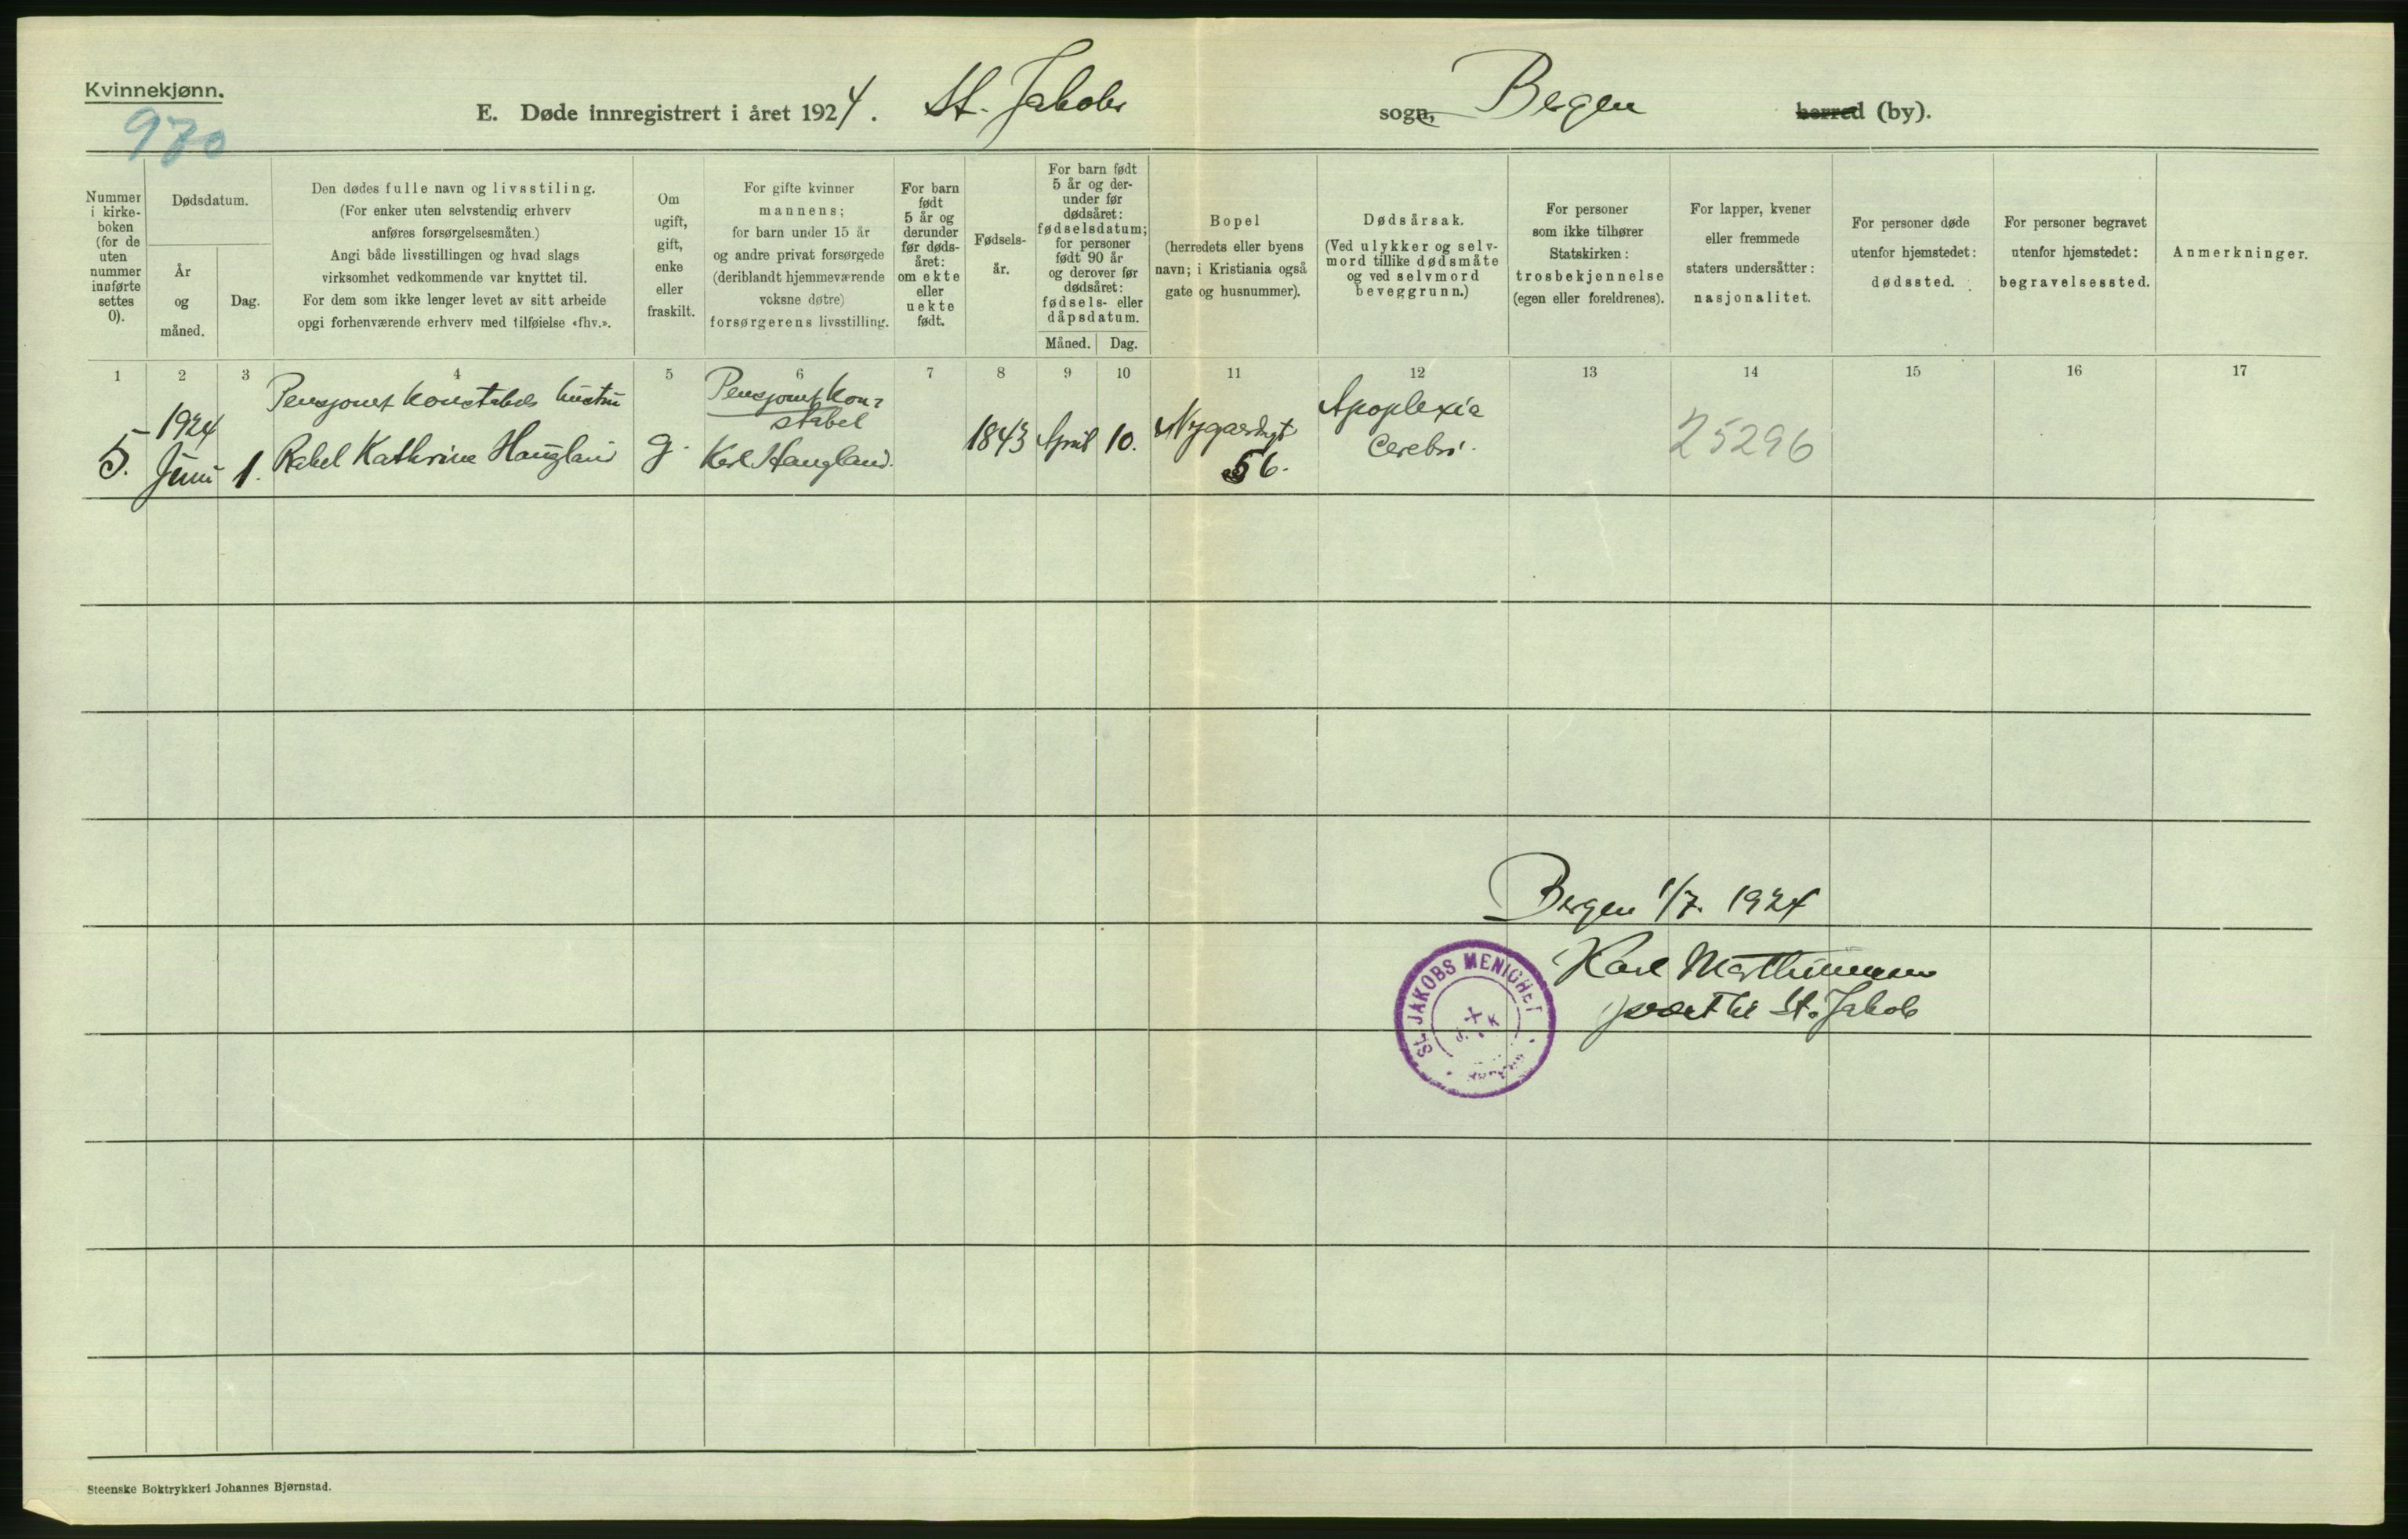 Kvinnekjønn.
970
E. Døde innregistrert i året 1924. St. Jakobs sogn, Bergen herred (by).
Nummer
i kirke-
boken
(for de
uten
nummer
innførte
settes
0).
Dødsdatum.
År
og
måned.
Dag.
Den dødes fulle navn og livsstiling.
(For enker uten selvstendig erhverv
anføres forsørgelsesmåten.)
Angi både livsstillingen og hvad slags
virksomhet vedkommende var knyttet til.
For dem som ikke lenger levet av sitt arbeide
opgi forhenværende erhverv med tilføielse «fhv.».
Om
ugift,
gift,
enke
eller
fraskilt.
For gifte kvinner
mannens;
for barn under 15 år
og andre privat forsørgede
(deriblandt hjemmeværende
voksne døtre)
forsørgerens livsstilling.
For barn
født
5 år og
derunder
før døds-
året:
om ekte
eller
uekte
født.
Fødsels-
år.
For barn født
5 år og der-
under før
dødsåret:
fødselsdatum;
for personer
født 90 år
og derover før
dødsåret:
fødsels- eller
dåpsdatum.
Måned. Dag.
Bopel
(herredets eller byens
navn; i Kristiania også
gate og husnummer).
Dødsårsak.
(Ved ulykker og selv-
mord tillike dødsmåte
og ved selvmord
beveggrunn.)
For personer
som ikke tilhører
Statskirken:
trosbekjennelse
(egen eller foreldrenes).
For lapper, kvener
eller fremmede
staters undersåtter:
nasjonalitet.
For personer døde
utenfor hjemstedet:
dødssted.
For personer begravet
utenfor hjemstedet:
begravelsessted.
Anmerkninger.
1 2 3 4 5 6 7 8 9 10 11 12 13 14 15 16 17
5.
1924
Juni
1.
Pensjonert konstabels hustru
Rakel Kathrine Haugland
g.
Pensjonert kon-
stabel
Karl Haugland.
1843 April 10.
Nygaardsgt
56.
Apoplexia
Cerebri.
25296
Bergen 1/7. 1924
Karl Marthinussen
prest til St. Jakob
ST. JAKOBS MENIGHET
Steenske Boktrykkeri Johannes Bjørnstad.